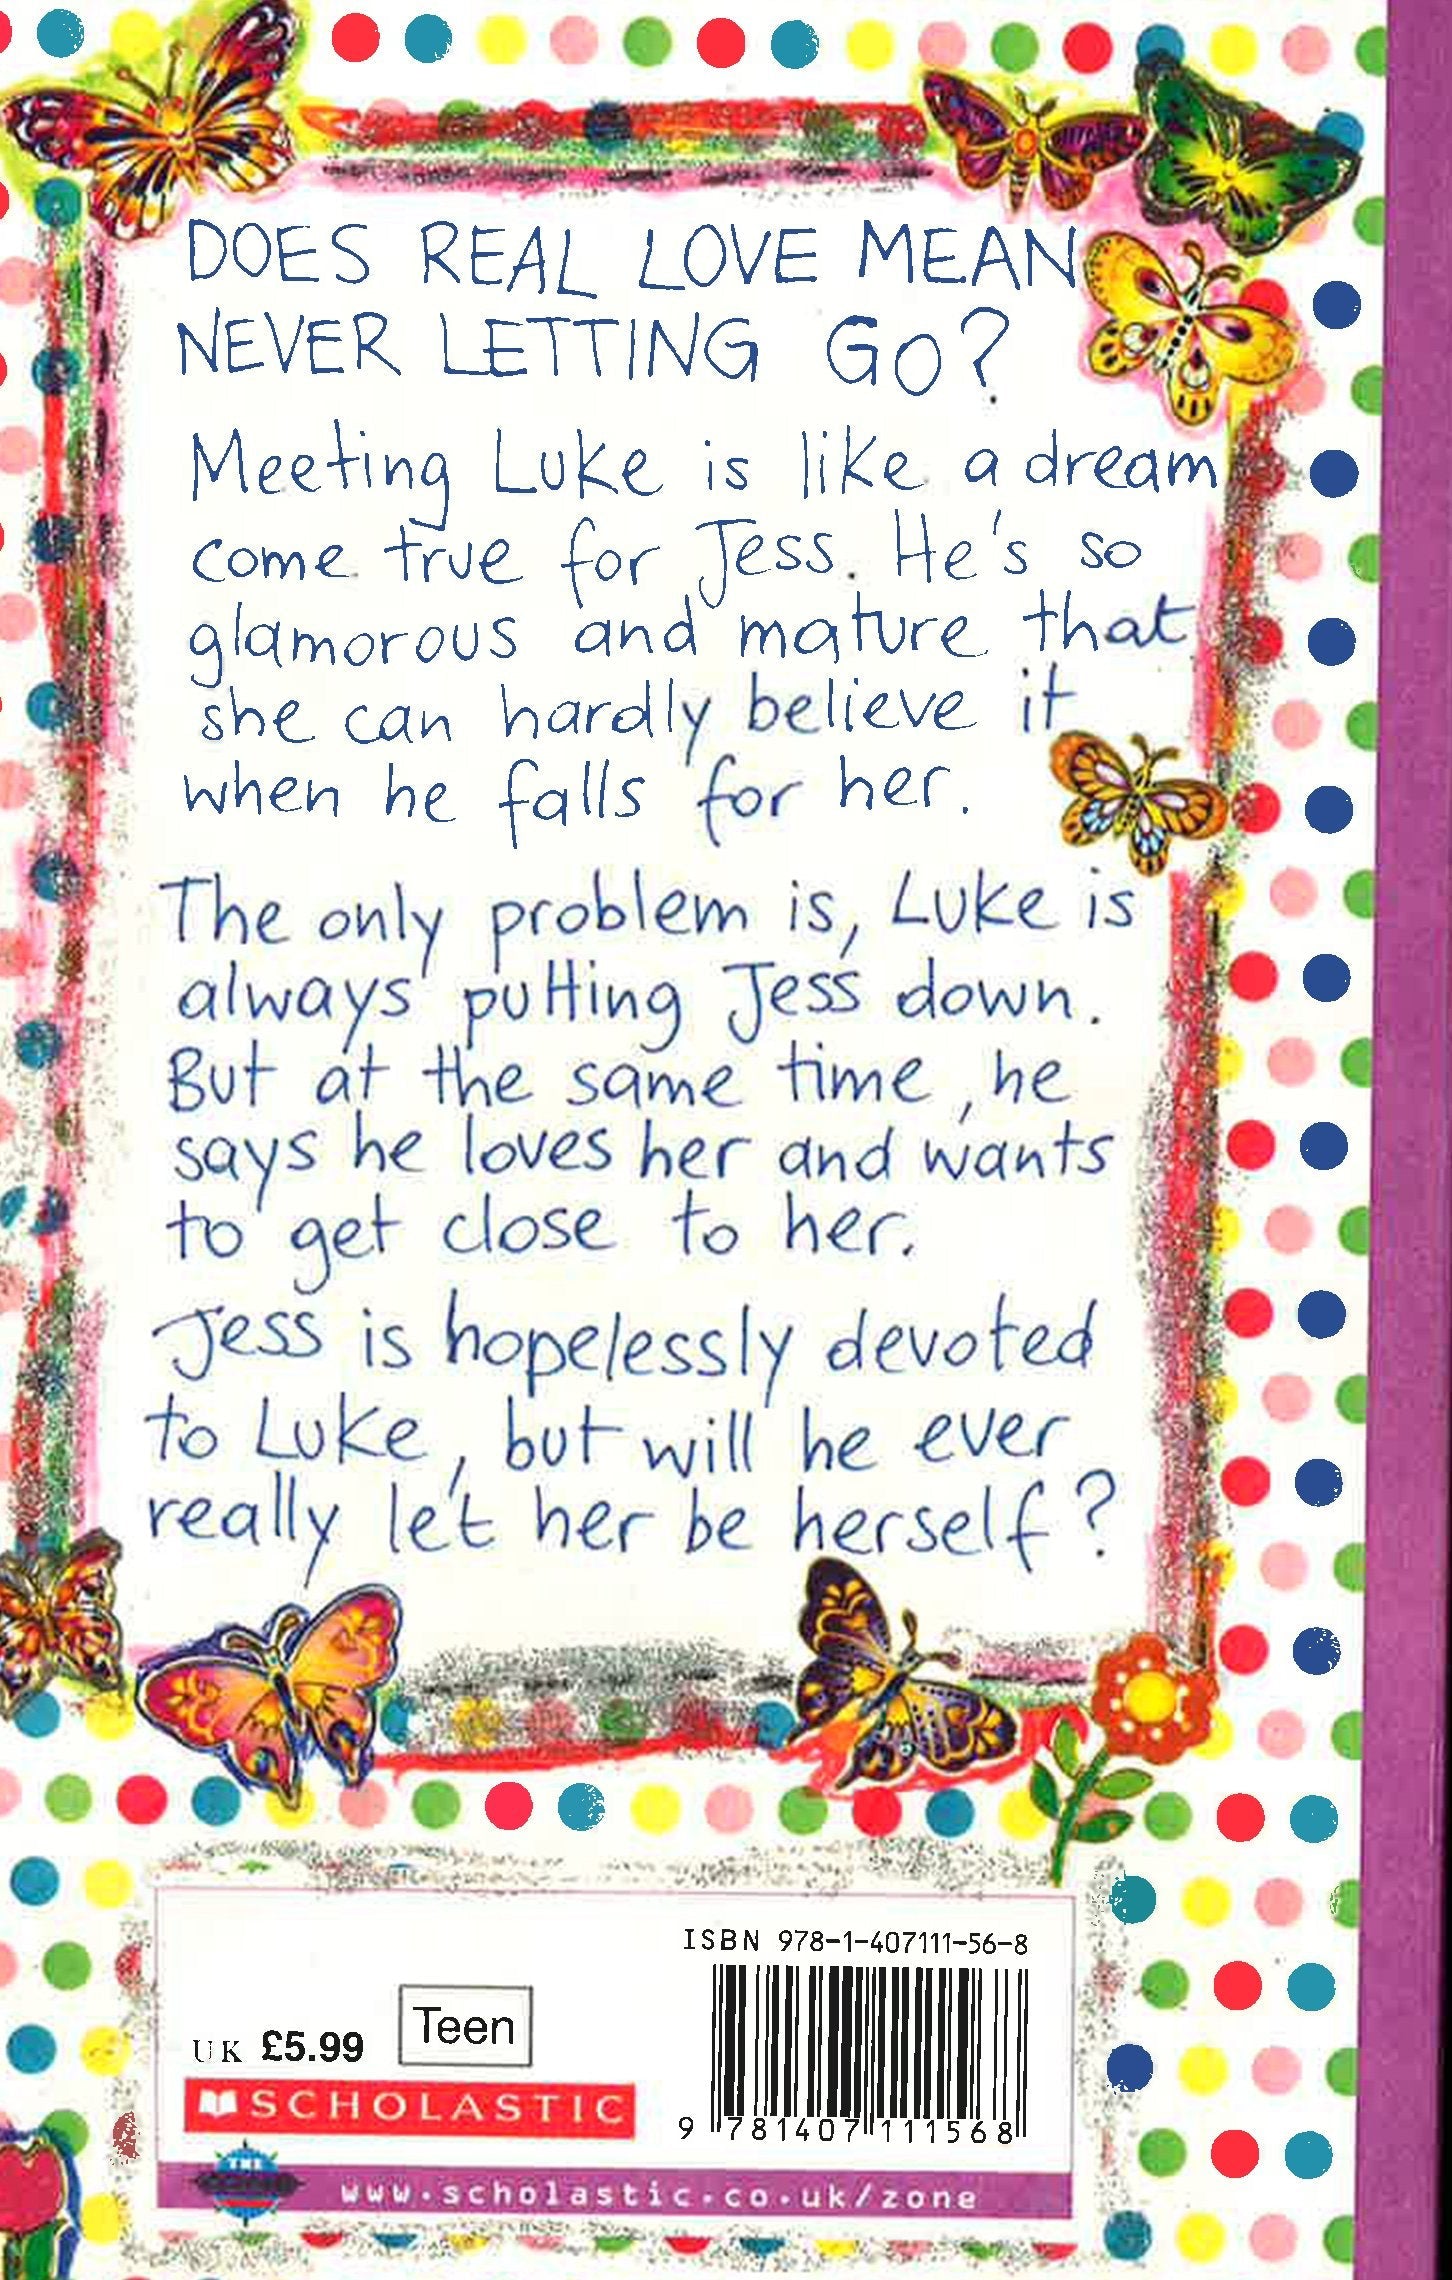 DOES REAL LOVE MEAN
NEVER LETTING GO?
Meeting Luke is like a dream
come true for Jess. He's so
glamorous and mature that
she can hardly believe it
when he falls for her.
The only problem is, Luke is
always putting Jess down.
But at the same time, he
says he loves her and wants
to get close to her.
Jess is hopelessly devoted
to Luke, but will he ever
really let her be herself?
ISBN 978-1-407111-56-8
UK £5.99
Teen
SCHOLASTIC
9 781407 111568
THE
www.scholastic.co.uk/zone